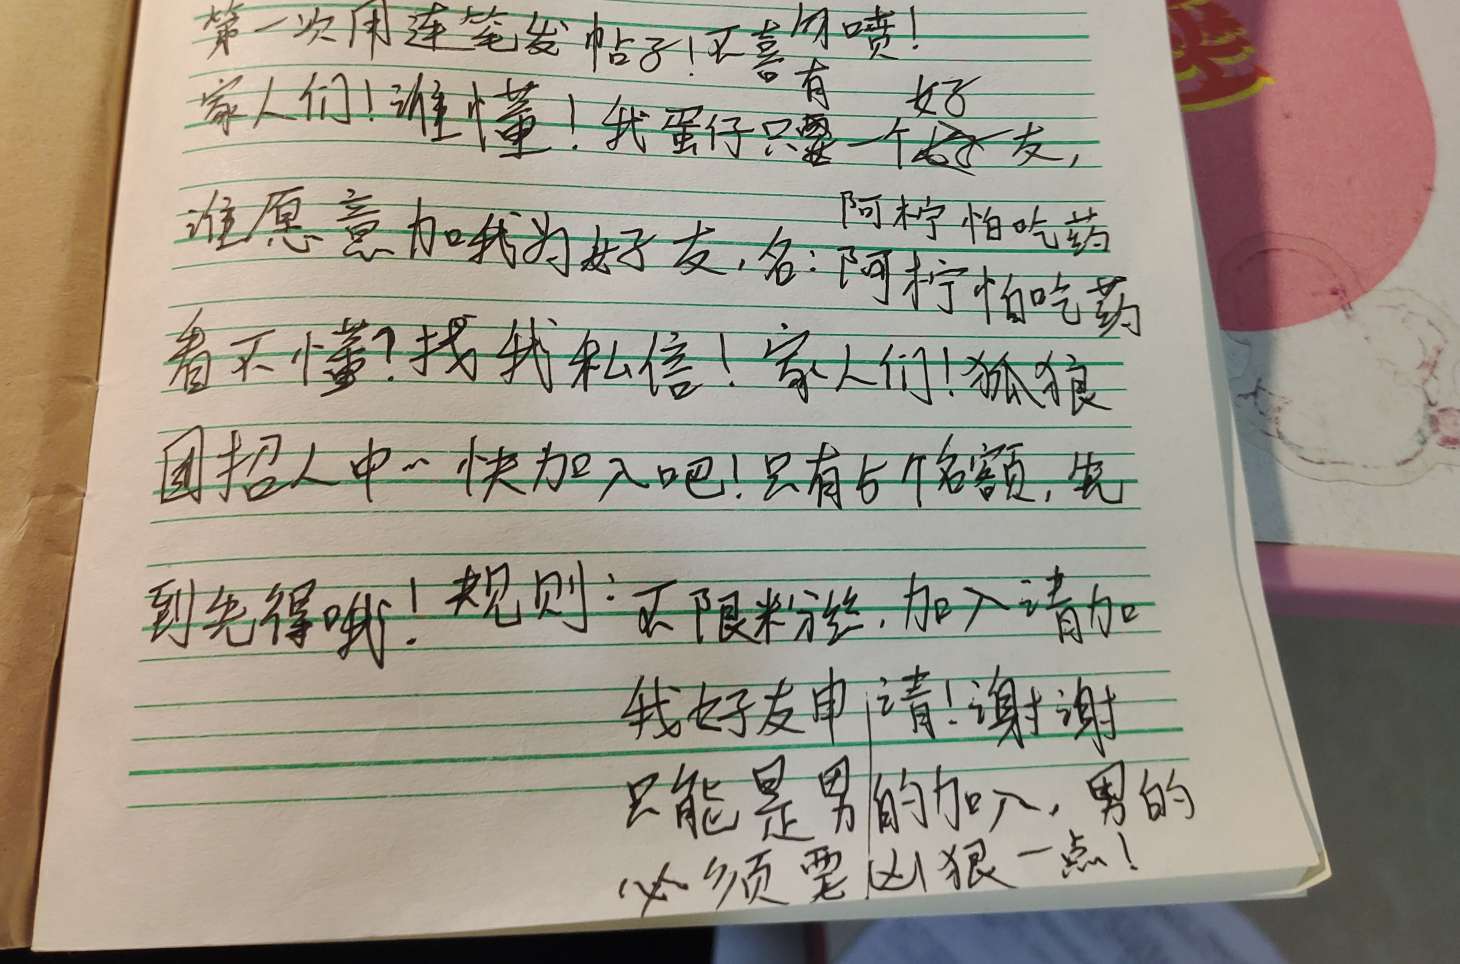 第一次用连笔发帖子!不喜勿喷!
家人们!谁懂!我蛋仔只有一个好友,
谁愿意加我为好友,名:阿柠怕吃药
阿柠怕吃药
看不懂?找我私信!家人们!狐狼
团招人中~快加入吧!只有5个名额,先
到先得哦!规则:不限粉丝,加入请加
我好友申请!谢谢
只能是男的加入,男的
必须要凶狠一点!